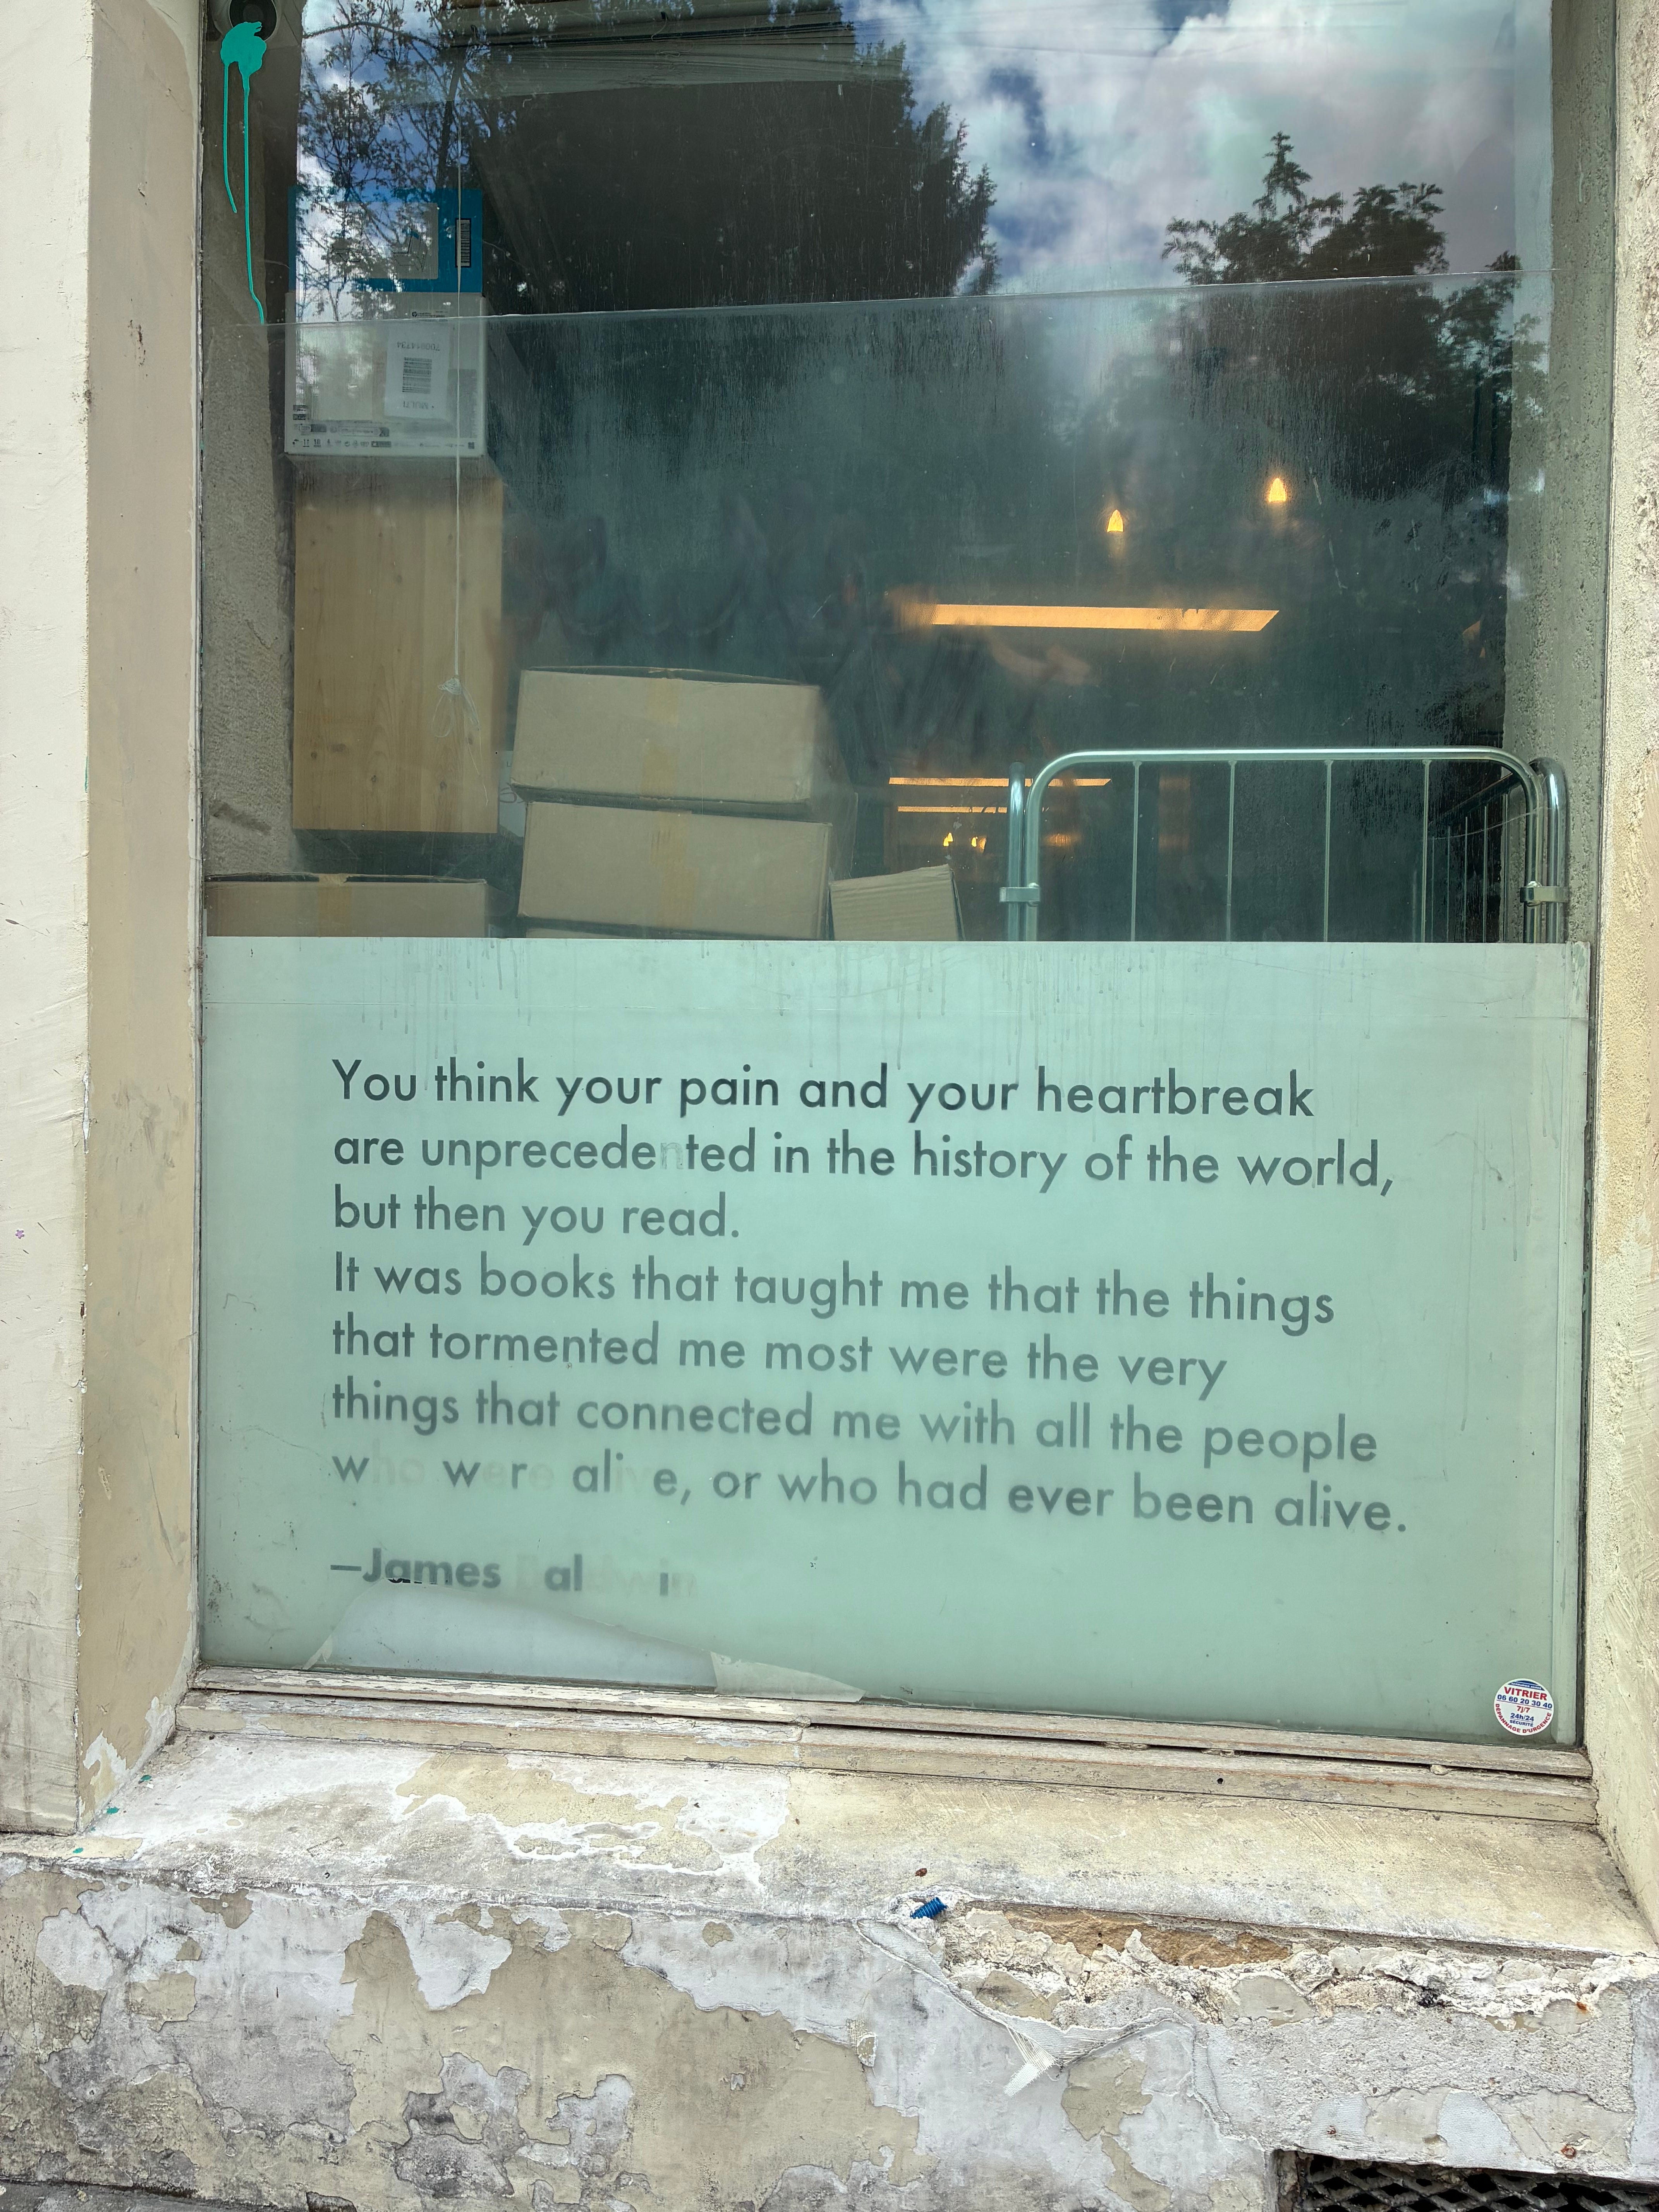 You think your pain and your heartbreak
are unprecedented in the history of the world,
but then you read.
It was books that taught me that the things
that tormented me most were the very
things that connected me with all the people
who were alive, or who had ever been alive.
—James Baldwin
VITRIER
06 60 20 30 40
7j/7
24h/24
SÉCURITÉ
DÉPANNAGE D'URGENCE